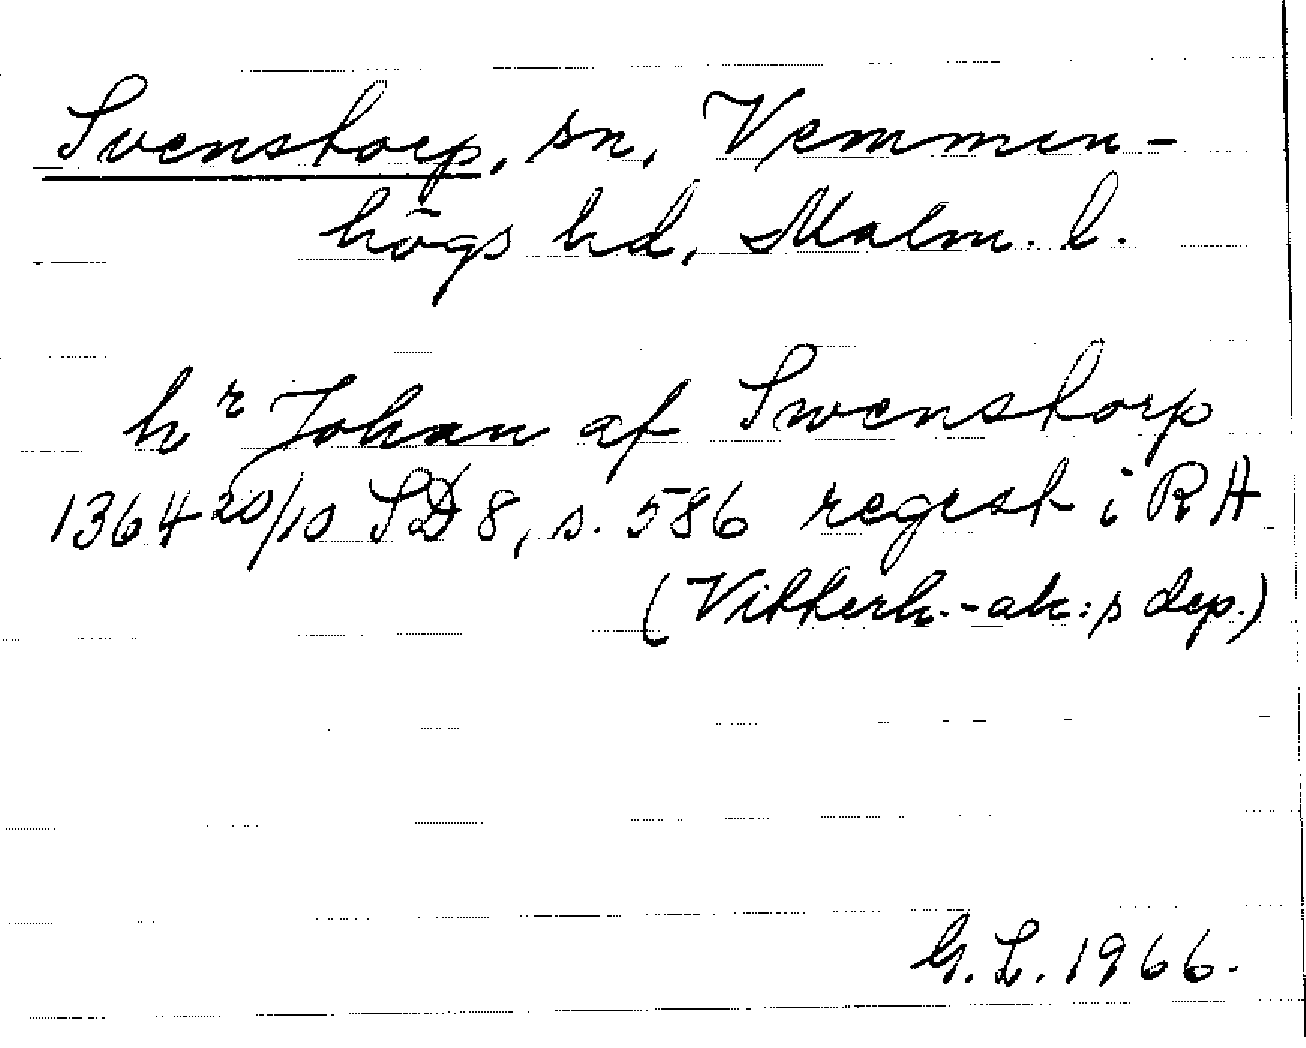 Svenstorp, sn, Vemmen-
högs hd, Malm. l.
hr Johan af Swenstorp
1364 20/10 SD 8, s. 586 regest i RA
(Vitterh.-ak:s dep.)
G. L. 1966.